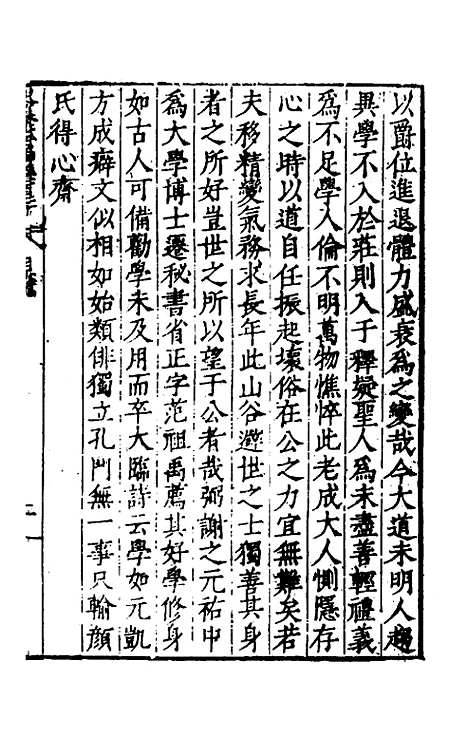 以爵位進退體力盛衰爲之變哉今大道未明人趨
異學不入於莊則入于釋疑聖人爲未盡善輕禮義
爲不足學人倫不明萬物憔悴此老成大人惻隱存
心之時以道自任振起壞俗在公之力宜無難矣若
夫移精變氣務求長年此山谷避世之士獨善其身
者之所好豈世之所以望于公者哉弼謝之元祐中
爲大學博士遷秘書省正字范祖禹薦其好學修身
如古人可備勸學未及用而卒大臨詩云學如元凱
方成癖文似相如始類俳獨立孔門無一事只輸顏
氏得心齋